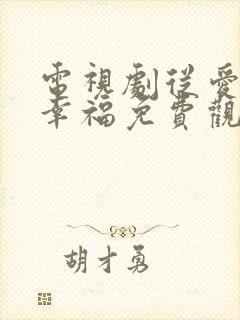 電視劇從愛
幸福免費觀
胡才勇